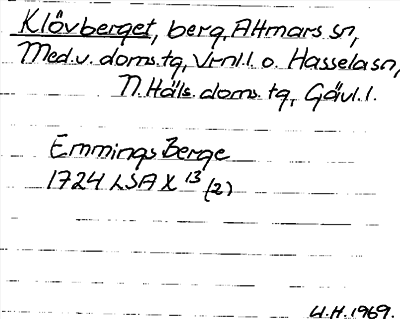 Klövberget, berg, Attmars sn,
Med.v. doms.tg, Vrnl.l. o. Hassela sn,
N.Häls. doms. tg, Gävl.l.
Emmings Berge
1724 LSA X 13 (2)
U.H. 1969.